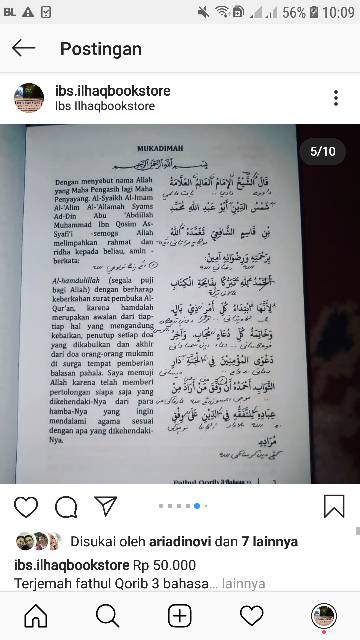 BL 56% 10:09
Postingan
ibs.ilhaqbookstore
Ibs Ilhaqbookstore
5/10
MUKADIMAH
Dengan menyebut nama Allah
yang Maha Pengasih lagi Maha
Penyayang. Al-Syaikh Al-Imam
Al-'Alim Al-'Allamah Syams
Ad-Din Abu 'Abdillah
Muhammad Ibn Qosim As-
Syafi'i -semoga Allah
melimpahkan rahmat dan
ridha kepada beliau, amin -
berkata:
Al-hamdulillah (segala puji
bagi Allah) dengan berharap
keberkahan surat pembuka Al-
Qur'an, karena hamdalah
merupakan awalan dari tiap-
tiap hal yang mengandung
kebaikan, penutup setiap doa
yang dikabulkan dan akhir
dari doa orang-orang mukmin
di surga tempat pemberian
balasan pahala. Saya memuji
Allah karena telah memberi
pertolongan siapa saja yang
dikehendaki-Nya dari para
hamba-Nya yang ingin
mendalami agama sesuai
dengan apa yang dikehendaki-
Nya.
بسم الله الرحمن الرحيم
قَالَ الشَّيْخُ الْإِمَامُ الْعَالِمُ الْعَلَّامَةُ
شَمْسُ الدِّيْنِ أَبُوْ عَبْدِ اللهِ مُحَمَّدُ
بْنُ قَاسِمِ الشَّافِعِيُّ تَغَمَّدَهُ اللهُ
بِرَحْمَتِهِ وَرِضْوَانِهِ آمِيْنَ:
الْحَمْدُ لِلهِ تَبَرُّكًا بِفَاتِحَةِ الْكِتَابِ
لِأَنَّهَا ابْتِدَاءُ كُلِّ أَمْرٍ ذِيْ بَالٍ،
وَخَاتِمَةُ كُلِّ دُعَاءٍ مُجَابٍ، وَآخِرُ
دَعْوَى الْمُؤْمِنِيْنَ فِي الْجَنَّةِ دَارِ
الثَّوَابِ، أَحْمَدُهُ أَنْ وَفَّقَ مَنْ أَرَادَ مِنْ
عِبَادِهِ لِلتَّفَقُّهِ فِي الدِّيْنِ عَلَى وَفْقِ
مُرَادِهِ
Fathul Qorib 3 Bahasa
Disukai oleh ariadinovi dan 7 lainnya
ibs.ilhaqbookstore Rp 50.000
Terjemah fathul Qorib 3 bahasa... lainnya